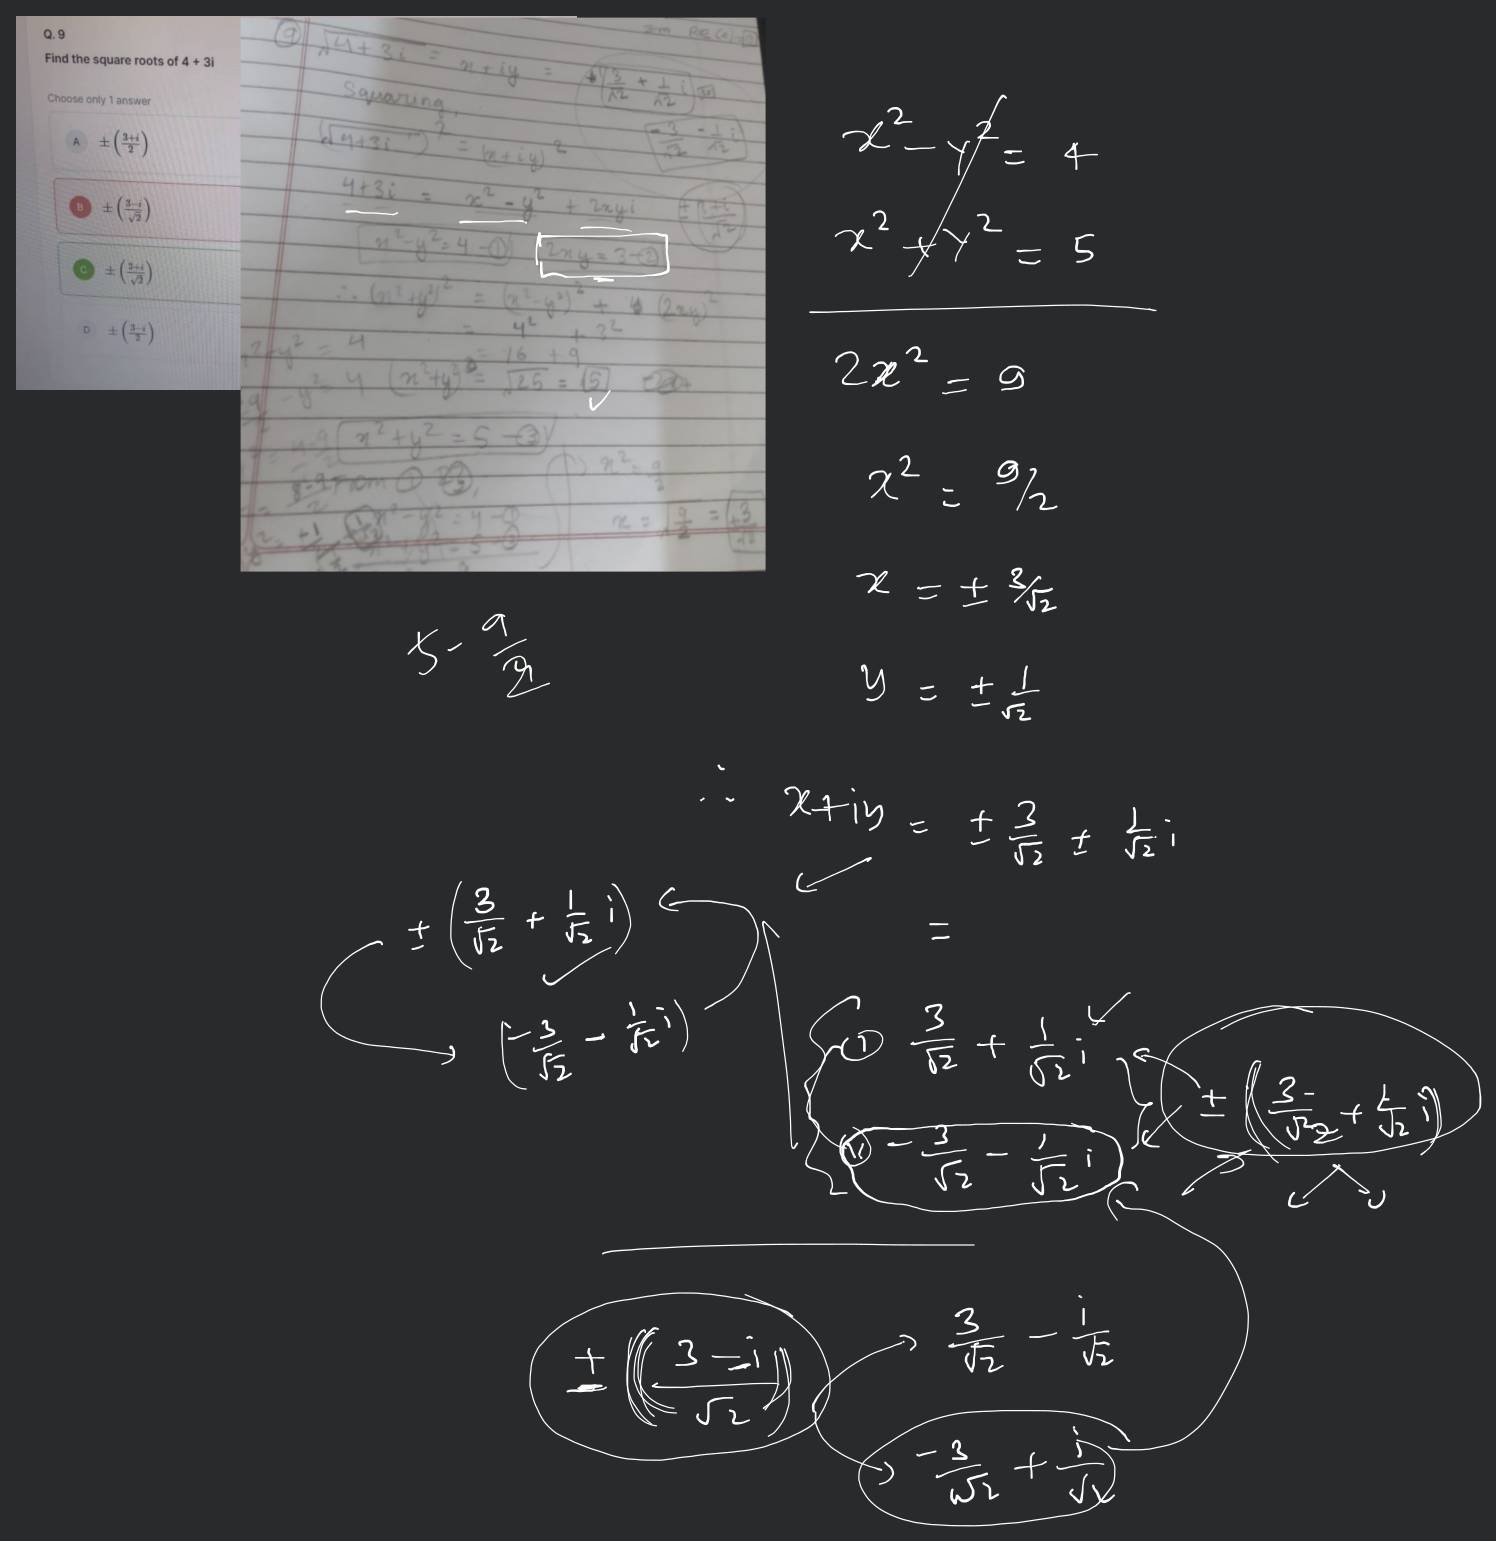 Q. 9
Find the square roots of 4 + 3i
Choose only 1 answer
A ±((3+i)/2)
B ±((3-i)/√2)
C ±((3+i)/√2)
D ±((3-i)/2)
⑨ √4+3i = x+iy = 3/√2 + 1/√2 i
Squaring,
(√4+3i)² = (x+iy)²
-3/√2 - 1/√2 i
4+3i = x² - y² + 2xyi
x²-y²=4-① 2xy=3-②
∴ (x²+y²)² = (x²-y²)² + (2xy)²
= 4² + 3²
= 16 + 9
(x²+y²) = √25 = 5
x²+y² = 5 -③
From ① & ③,
x²-y²=4-①
x²+y²=5-③
x² = 9/2
x = √9/2 = ±3/√2
x² - y² = 4
x² + y² = 5
2x² = 9
x² = 9/2
x = ± 3/√2
5 - 9/2
y = ± 1/√2
∴ x+iy = ± 3/√2 ± 1/√2 i
=
± (3/√2 + 1/√2 i)
(-3/√2 - 1/√2 i)
① 3/√2 + 1/√2 i
± (3/√2 + 1/√2 i)
⑪ -3/√2 - 1/√2 i
± ((3-i)/√2)
3/√2 - i/√2
-3/√2 + i/√2